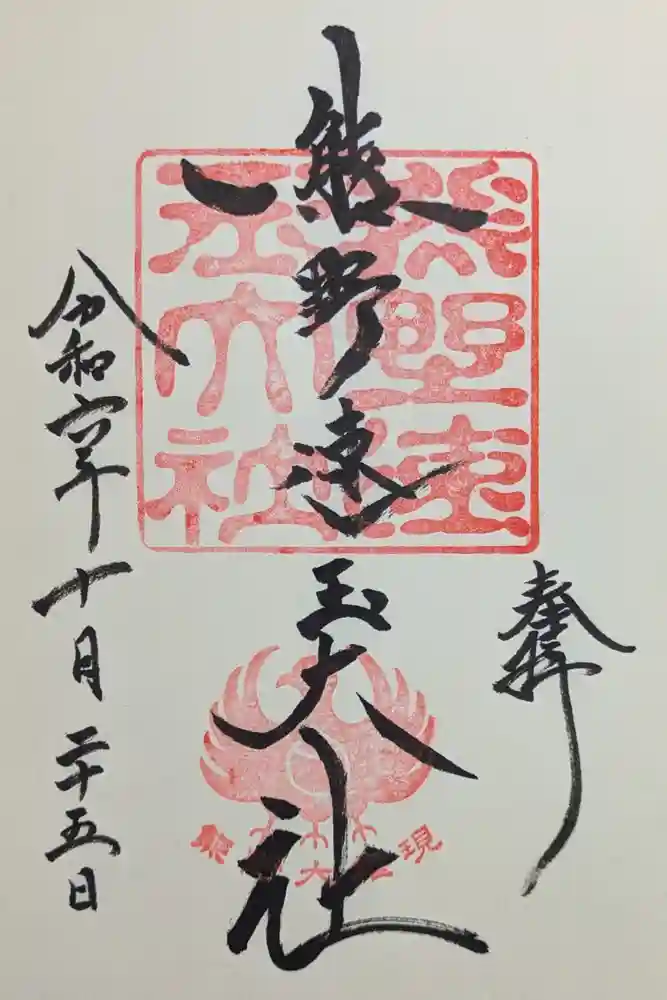 奉拝
熊野速玉大社
熊野速玉大社
令和六年十月二十五日